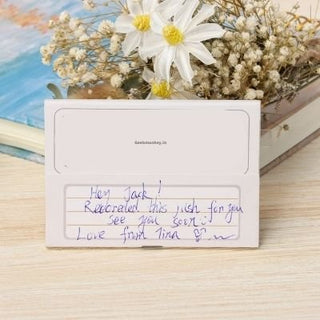 Hey Jack!
Recorded this wish for you
see you soon :
Love from Tina ♡